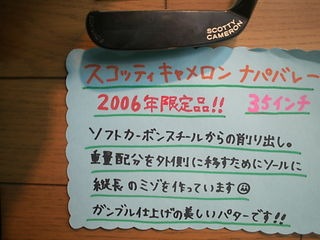 SCOTTY
CAMERON
スコッティキャメロン ナパバレー
2006年限定品!! 35インチ
ソフトカーボンスチールからの削り出し。
重量配分を外側に移すためにソールに
縦長のミゾを作っています
ガンブル仕上げの美しいパターです!!